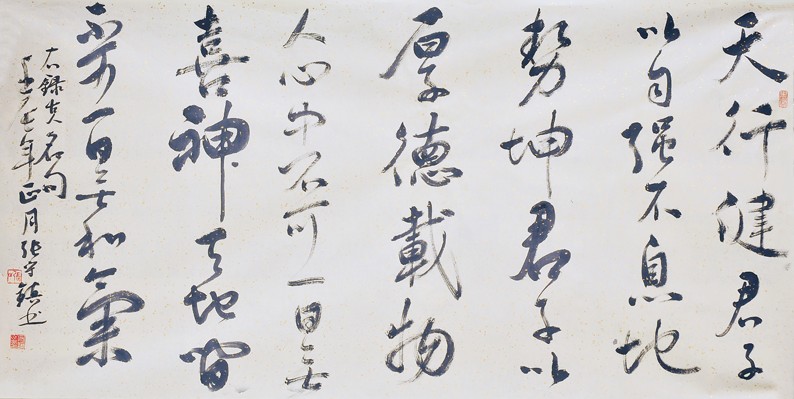 天行健君子
以自强不息地
勢坤君子以
厚德載物
人心中不可一日无
喜神天地間
不可一日无和氣
右錄名句
年正月張守鎮书